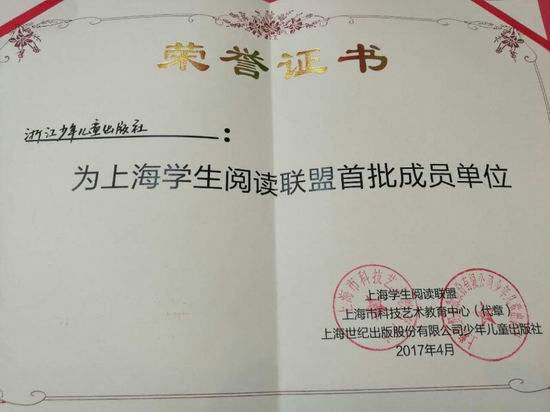 荣誉证书
浙江少年儿童出版社：
为上海学生阅读联盟首批成员单位
上海学生阅读联盟
上海市科技艺术教育中心（代章）
上海世纪出版股份有限公司少年儿童出版社
2017年4月